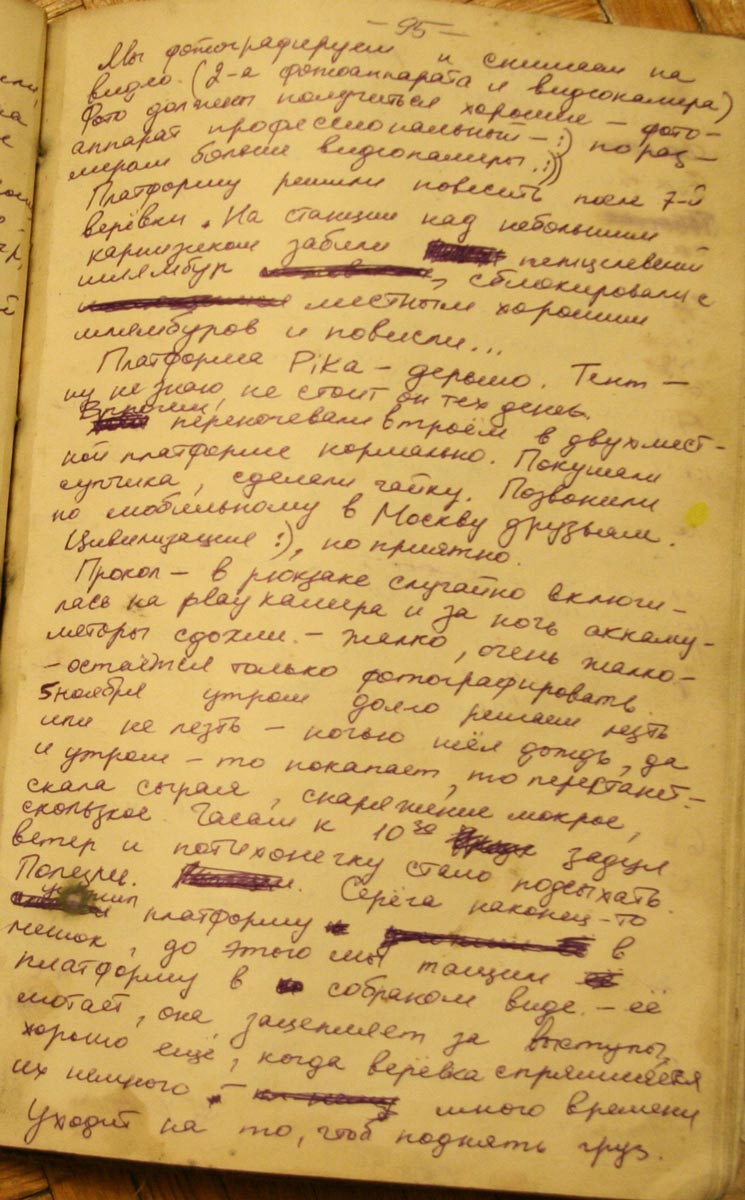 – 95 –
Мы фотографируем и снимаем на
видео. (2-а фотоаппарата и видеокамера)
Фото должны получиться хорошие – фото-
аппарат профессиональный – :) по раз-
мерам больше видеокамеры. :))
Платформу решили повесить после 7-й
верёвки. На станции над небольшим
карнизиком забили шлямбур
, сблокировали с
местным хорошим
шлямбуров и повисли...
Платформа Pika – дерьмо. Тент –
ну не знаю, не стоит он тех денег.
Впрочем, переночевали втроём в двухмест-
ной платформе нормально. Покушали
супчика, сделали чайку. Позвонили
по мобильному в Москву друзьям.
Цивилизация :), но приятно.
Прокол – в рюкзаке случайно включи-
лась на play камера и за ночь аккаму-
ляторы сдохли. – Жалко, очень жалко –
– остаётся только фотографировать.
5 ноября утром долго решаем лезть
или не лезть – ночью шёл дождь, да
и утром – то покапает, то перестанет –
скала сырая, снаряжение мокрое,
скользкое. Часам к 10 30 задул
ветер и потихонечку стало подсыхать.
Полезли. Серёга наконец-то
платформу в
мешок, до этого мы тащили
платформу в собраном виде. – её
мотает, она зацепляет за выступы,
хорошо ещё, когда верёвка спрямляется
их немного – много времени
уходит на то, чтоб поднять груз.